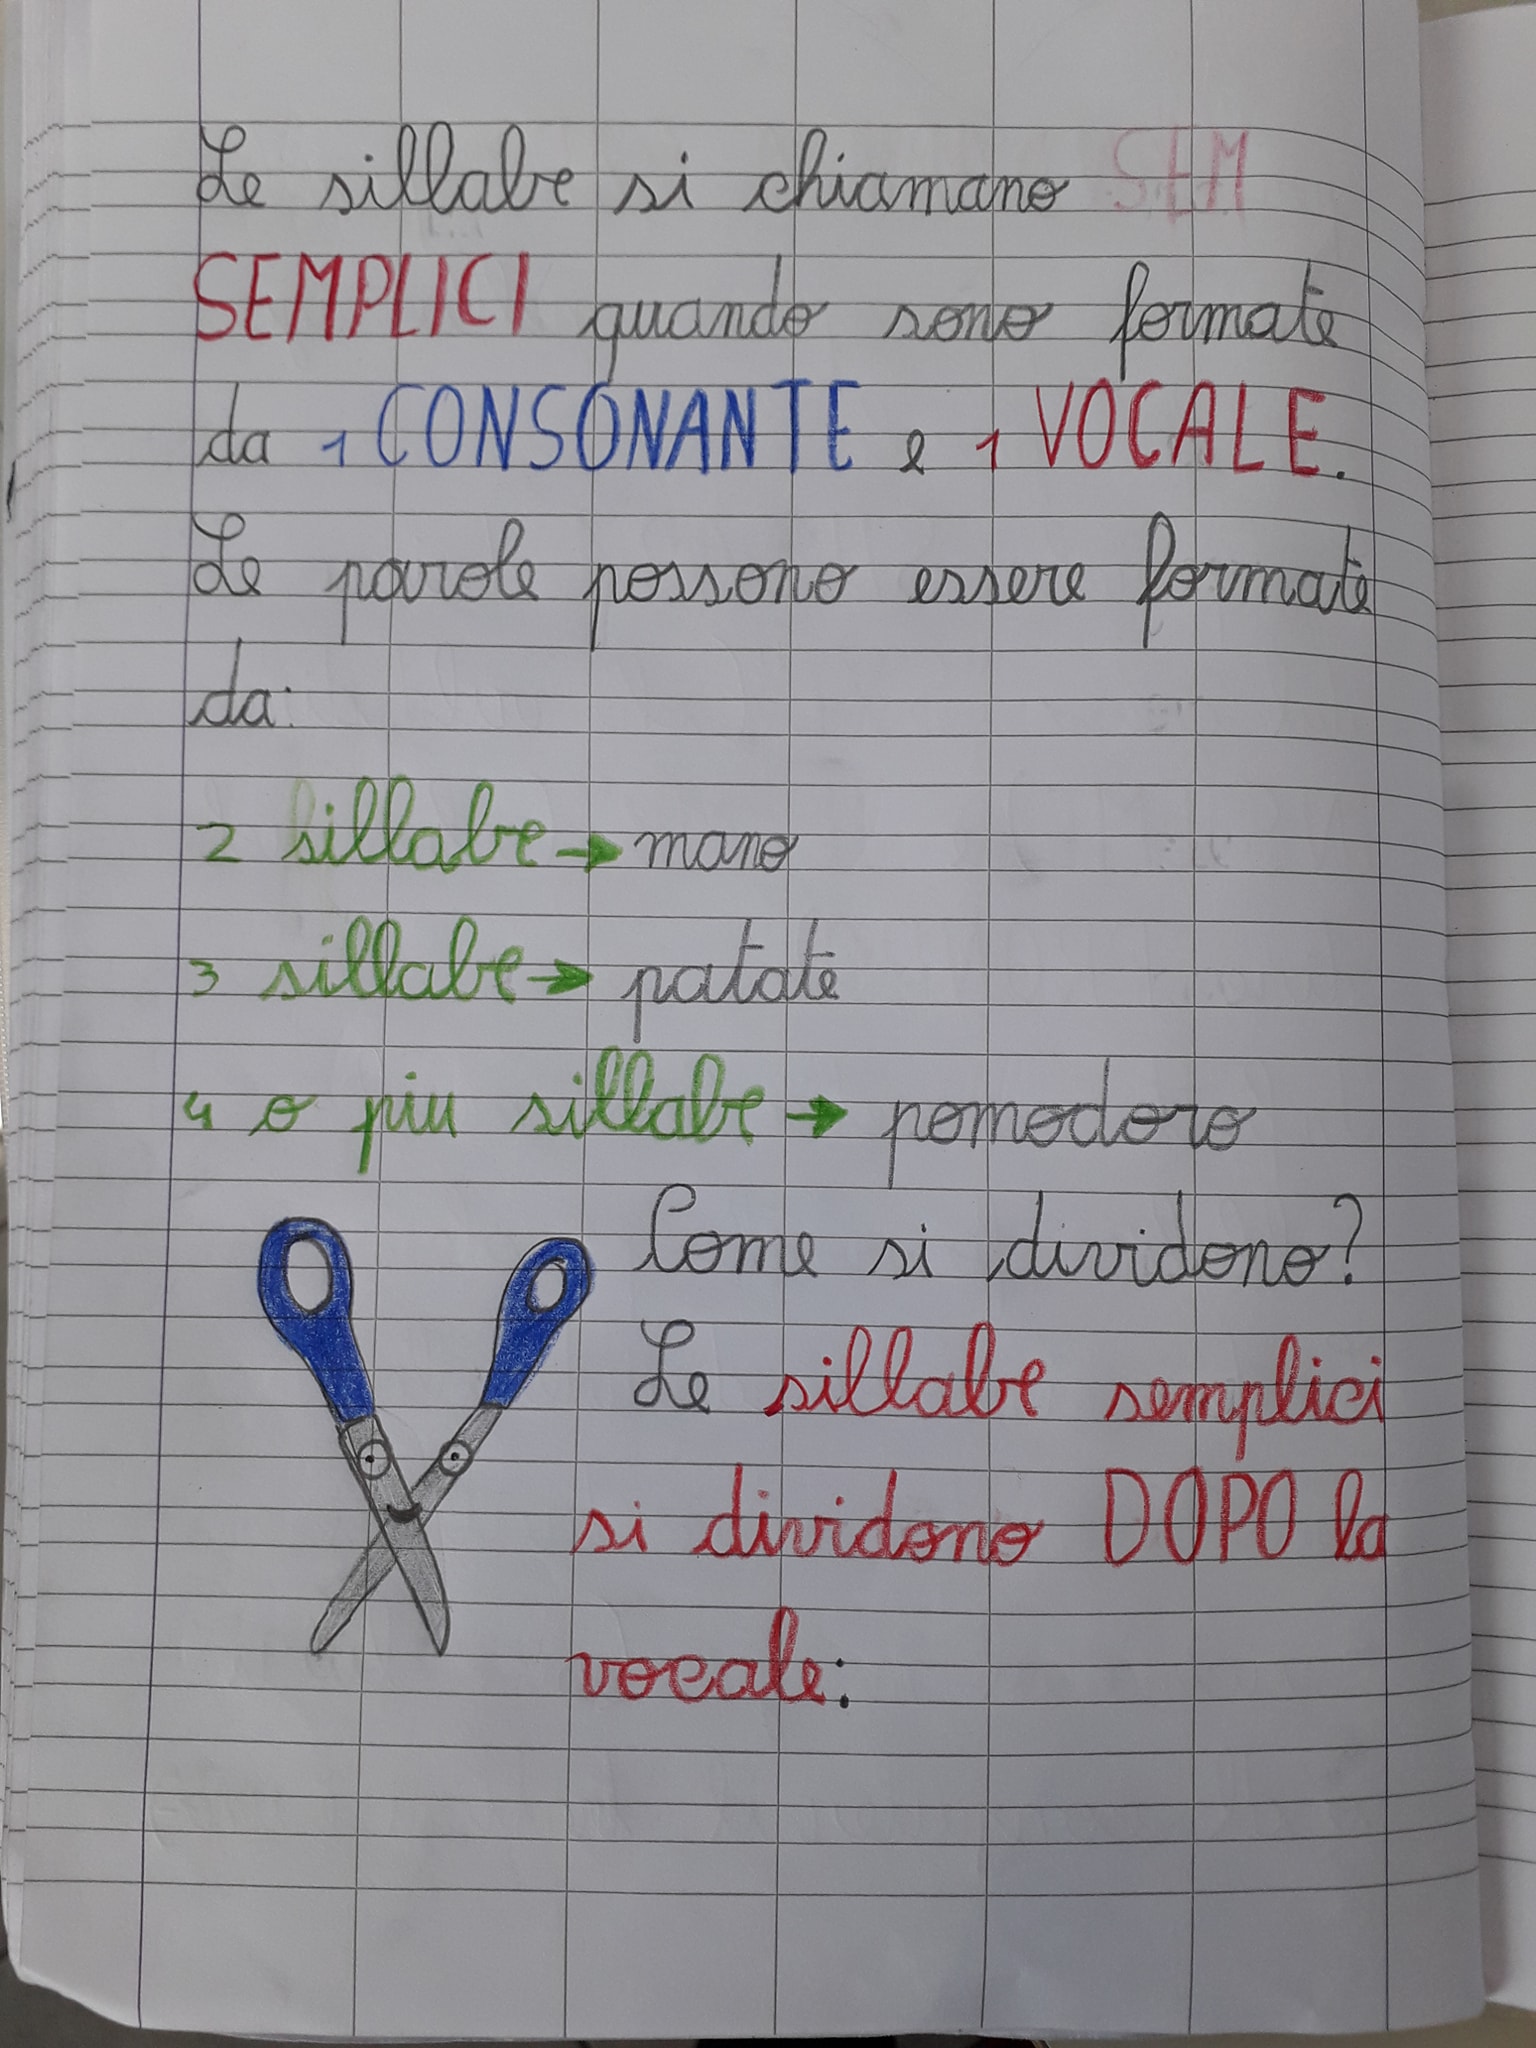 Le sillabe si chiamano SEM
SEMPLICI quando sono formate
da 1 CONSONANTE e 1 VOCALE.
Le parole possono essere formate
da:
2 sillabe → mano
3 sillabe → patate
4 o piu sillabe → pomodoro
Come si dividono?
Le sillabe semplici
si dividono DOPO la
vocale: